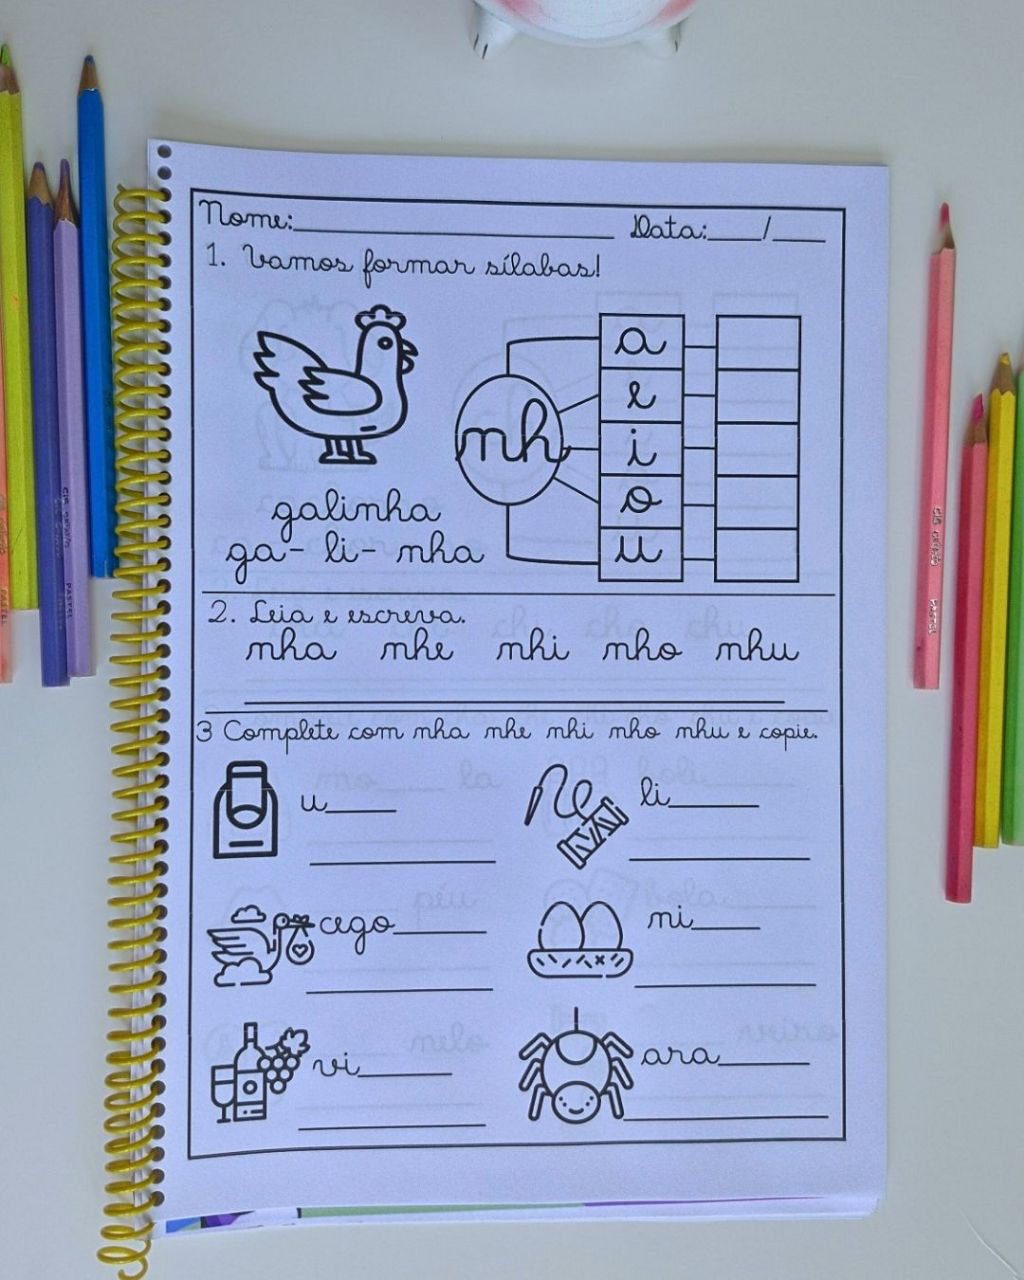 Nome:____________ Data:____/____
1. Vamos formar sílabas!
nh
a
e
i
o
u
galinha
ga-li-nha
2. Leia e escreva.
nha nhe nhi nho nhu
3 Complete com nha nhe nhi nho nhu e copie.
u______ li______
cego______ ni______
vi______ ara______